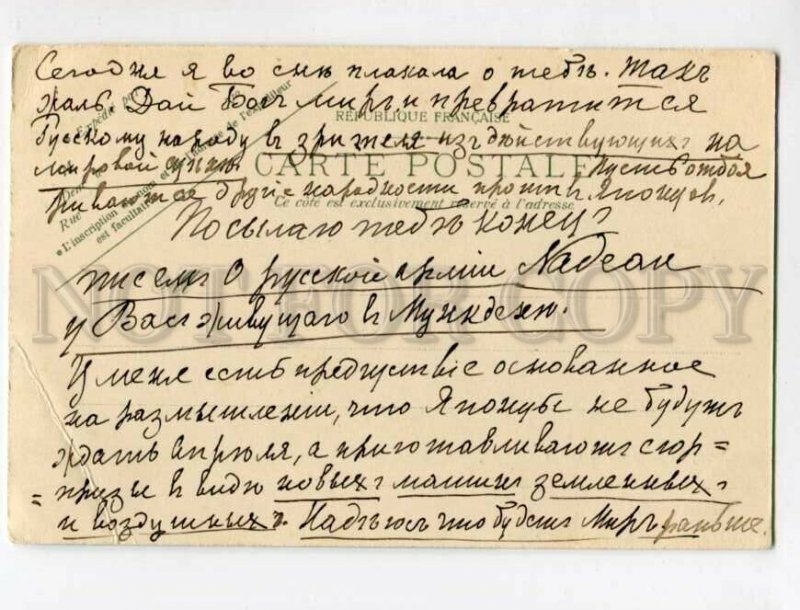 Сегодня я во снѣ плакала о тебѣ. Такъ
жаль. Дай Богъ миръ, и превратится
RÉPUBLIQUE FRANÇAISE
Русскому народу въ зрителя изъ дѣйствующихъ на
мировой сценѣ. Пусть отбоя
CARTE POSTALE
другіе народности противъ Японцевъ.
Ce côté est exclusivement réservé à l'adresse
Посылаю тебѣ конецъ
писемъ О русской арміи
у Васъ живущаго въ Мукденѣ.
У меня есть предчувствіе основанное
на размышленіи, что Японцы не будутъ
ждать апрѣля, а приготавливаютъ сюр=
=призы въ видѣ новыхъ машинъ земленныхъ
и воздушныхъ. Надѣюсь что будетъ Миръ раньше.
*L'inscription
est facultative
Rue
NOT FOR COPY